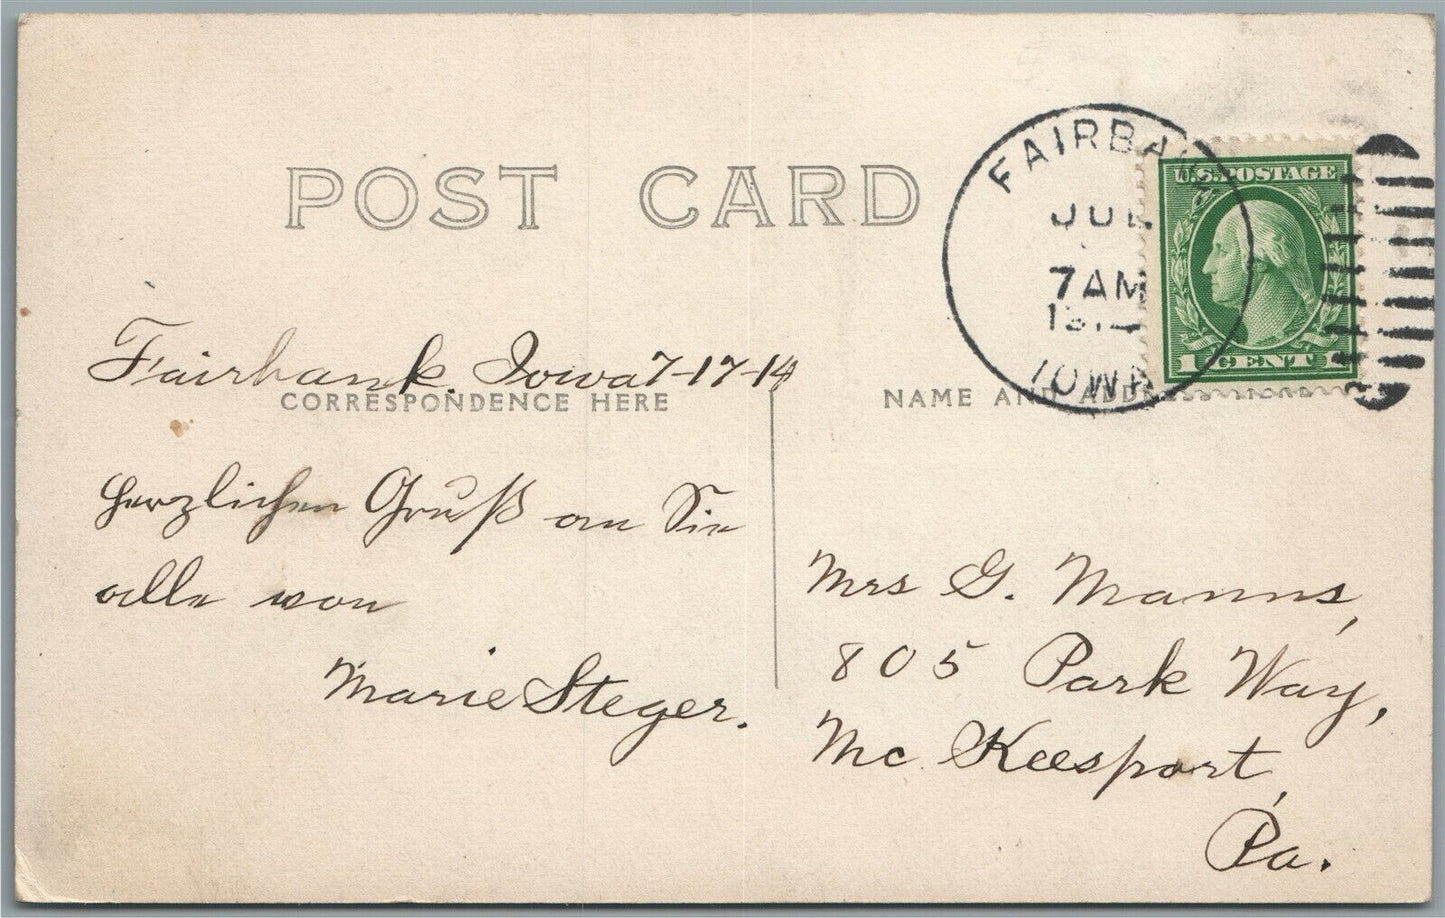 POST CARD
FAIRBA
JUL
7AM
IOWA
U.S. POSTAGE
1 CENT 1
Fairbank, Iowa 7-17-14
CORRESPONDENCE HERE
NAME AND ADDRE
herzlichen Gruß an Sie
alle von
Marie Steger.
Mrs G. Manns,
805 Park Way,
Mc Keesport,
Pa.